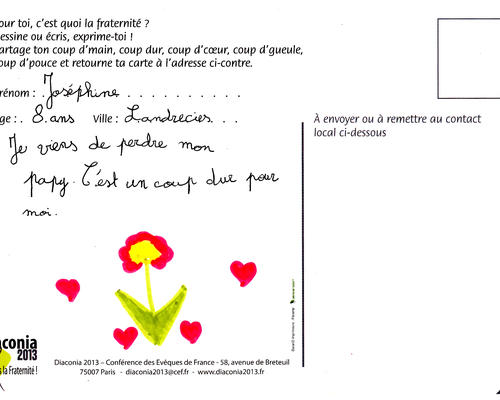 our toi, c'est quoi la fraternité ?
essine ou écris, exprime-toi !
artage ton coup d'main, coup dur, coup d'cœur, coup d'gueule,
oup d'pouce et retourne ta carte à l'adresse ci-contre.
rénom : Joséphine . . . . . . . . . .
ge : . 8 ans Ville : Landrecies . . .
Je viens de perdre mon
papy. C'est un coup dur pour
moi.
À envoyer ou à remettre au contact
local ci-dessous
aconia
2013
s la Fraternité !
Diaconia 2013 – Conférence des Evêques de France - 58, avenue de Breteuil
75007 Paris - diaconia2013@cef.fr - www.diaconia2013.fr